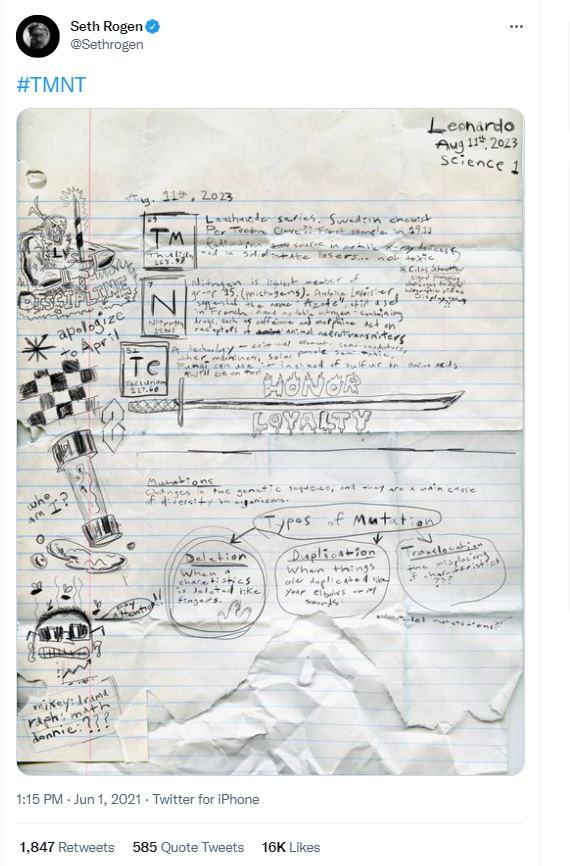 Seth Rogen
@Sethrogen
#TMNT
Leonardo
Aug 11th, 2023
Science 1
Aug. 11th, 2023
69
Tm
Thulium
Lanthanide series. Swedish chemist
Per Teodor Cleve?? First sample in 1911.
Radiation source in portable x-ray devices
and in solid state lasers... not toxic.
7
N
Nitrogen
Nitrogen is lightest member of
group 15 (pnictogens). Antoine Lavoisier
suggested the name still used
in French. nitrogen-containing
drugs, such as caffeine and morphine act on
receptors of animal neurotransmitters
52
Te
Tellurium
127.60
technology - critical element. semi-conductors,
other machines, solar panels semi-toxic.
Fungi can use it instead of sulfur in amino acids.
DISCIPLINE
apologize
to April
HONOR
LOYALTY
who
am I?
Mutations
Changes in the genetic sequence, and they are a main cause
of diversity in organisms.
Types of Mutation
Deletion
When a
charactistics
is deleted like
fingers.
Duplication
When things
are duplicated like
your elbows or my
swords.
Translocation
the misplacing
of characteristics
???
pay
attention!!
mikey: drama
raph: math
donnie: ???
1:15 PM · Jun 1, 2021 · Twitter for iPhone
1,847 Retweets 585 Quote Tweets 16K Likes